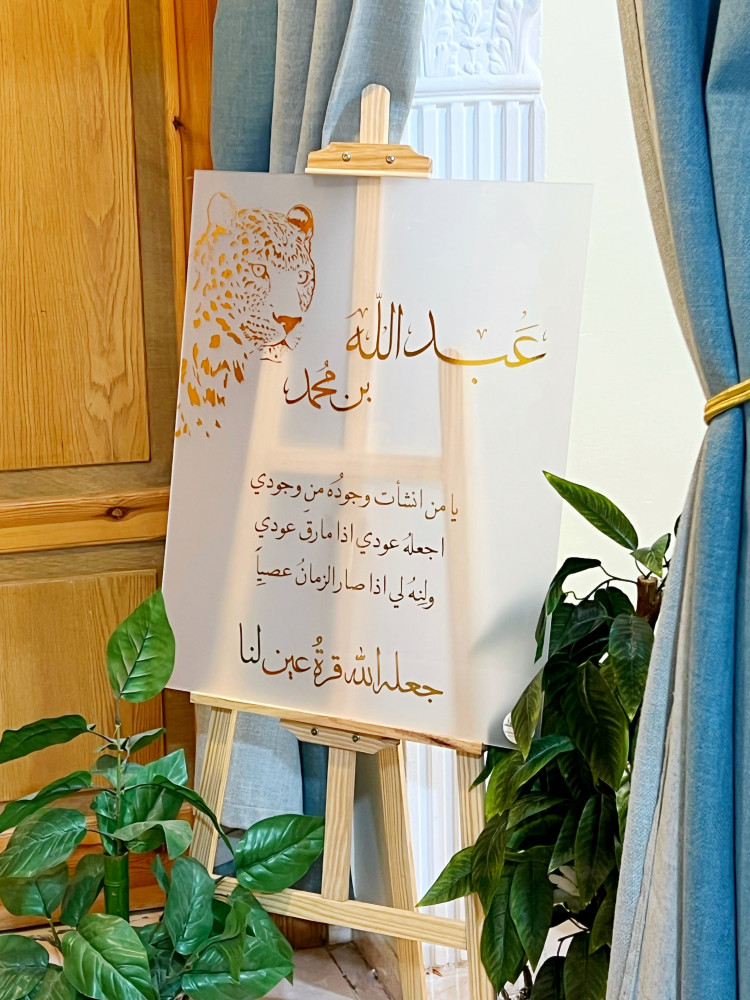 عَبد الله
بن مُحمد
يا من انشأت وجودُه من وجودي
اجعلهُ عودي اذا مارقَ عودي
ولِنِهُ لي اذا صار الزمانُ عصيِاَ
جعله الله قرةُ عين لنا